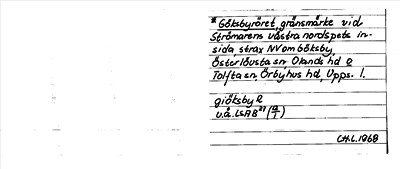 * Göksbyröret, gränsmärke vid
Strömarens västra nordspets in-
sida, strax NV om Göksby,
Österlövsta sn Olands hd o
Tolfta sn, Örbyhus hd, Upps. l.
giöksby R
u.å. LSA B
C.H.L. 1968